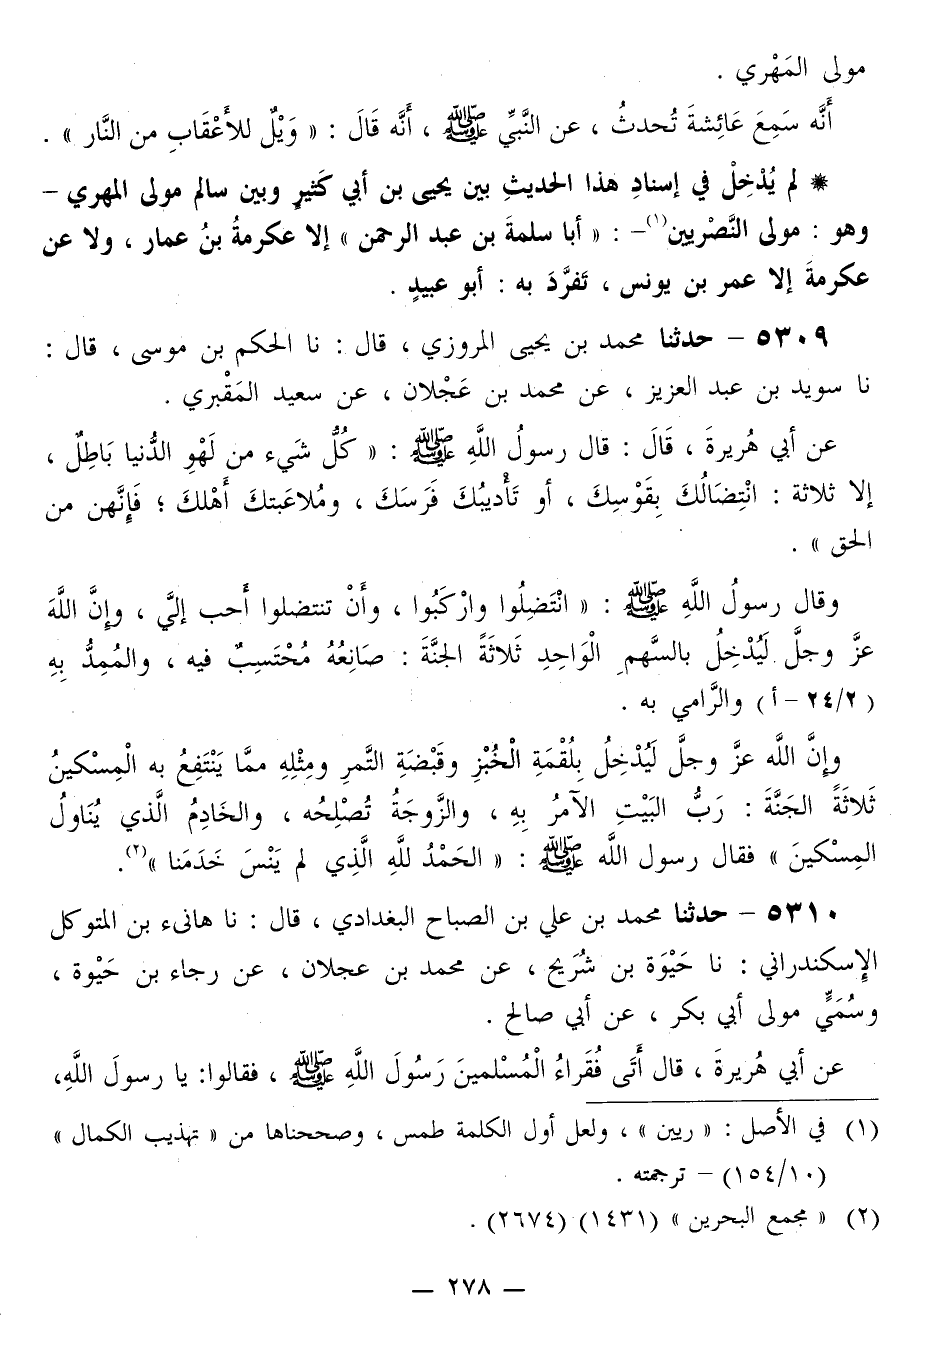 مولى المَهْري .
أَنَّه سَمِعَ عَائِشةَ تُحدثُ ، عن النَّبيِّ ﷺ ، أَنَّه قَالَ : « وَيْلٌ للأَعْقَابِ من النَّار » .
* لم يُدْخِلْ في إسنادِ هذا الحديثِ بين يحيى بن أبي كَثيرٍ وبين سالم مولى المهري –
وهو : مولى النَّصْريين(١)– : « أبا سلمةَ بن عبد الرحمن » إلا عكرمةُ بنُ عمار ، ولا عن
عكرمةَ إلا عمر بن يونس ، تَفرَّدَ به : أبو عبيدٍ .
٥٣٠٩ – حدثنا محمد بن يحيى المروزي ، قال : نا الحكم بن موسى ، قال :
نا سويد بن عبد العزيز ، عن محمد بن عَجْلان ، عن سعيد المَقْبري .
عن أبي هُريرةَ ، قَالَ : قال رسولُ اللَّهِ ﷺ : « كُلُّ شَيء من لَهْوِ الدُّنيا بَاطِلٌ ،
إلا ثلاثة : انْتِضَالُكَ بِقَوْسِكَ ، أو تَأْديبُكَ فَرَسَكَ ، ومُلاعَبتكَ أَهْلكَ ؛ فَإِنَّهن من
الحق » .
وقال رسولُ اللَّهِ ﷺ : « انْتَضِلُوا وارْكَبُوا ، وأَنْ تنتضلوا أَحب إليَّ ، وإِنَّ اللَّهَ
عزَّ وجلَّ لَيُدْخِلُ بالسَّهمِ الْوَاحِدِ ثَلاثَةً الجنَّةَ : صَانِعُهُ مُحْتَسِبٌ فيه ، والمُمِدُّ بِهِ
( ٢٤/٢ – أ ) والرَّامي به .
وإِنَّ اللَّه عزَّ وجلَّ لَيُدْخِلُ بِلُقْمَةِ الْخُبْزِ وقَبْضَةِ التَّمرِ ومِثْلِهِ ممَّا يَنْتَفِعُ به الْمِسْكينُ
ثَلاثَةً الجَنَّةَ : رَبُّ البَيْتِ الآمرُ بِهِ ، والزَّوجَةُ تُصْلِحُه ، والخَادِمُ الَّذي يُنَاولُ
المِسْكينَ » فقال رسول اللَّه ﷺ : « الحَمْدُ للَّهِ الَّذِي لم يَنْسَ خَدَمَنا »(٢).
٥٣١٠ – حدثنا محمد بن علي بن الصباح البغدادي ، قال : نا هانىء بن المتوكل
الإسكندراني : نا حَيْوَة بن شُرَيح ، عن محمد بن عجلان ، عن رجاء بن حَيْوة ،
وسُمَيٍّ مولى أبي بكر ، عن أبي صالح .
عن أبي هُريرةَ ، قال أَتَى فُقَراءُ الْمُسْلمينَ رَسُولَ اللَّهِ ﷺ ، فقالوا: يا رسولَ اللَّهِ،
(١) في الأصل : « ريين » ، ولعل أول الكلمة طمس ، وصححناها من « تهذيب الكمال »
(١٥٤/١٠) – ترجمته .
(٢) « مجمع البحرين » (١٤٣١) (٢٦٧٤) .
— ٢٧٨ —